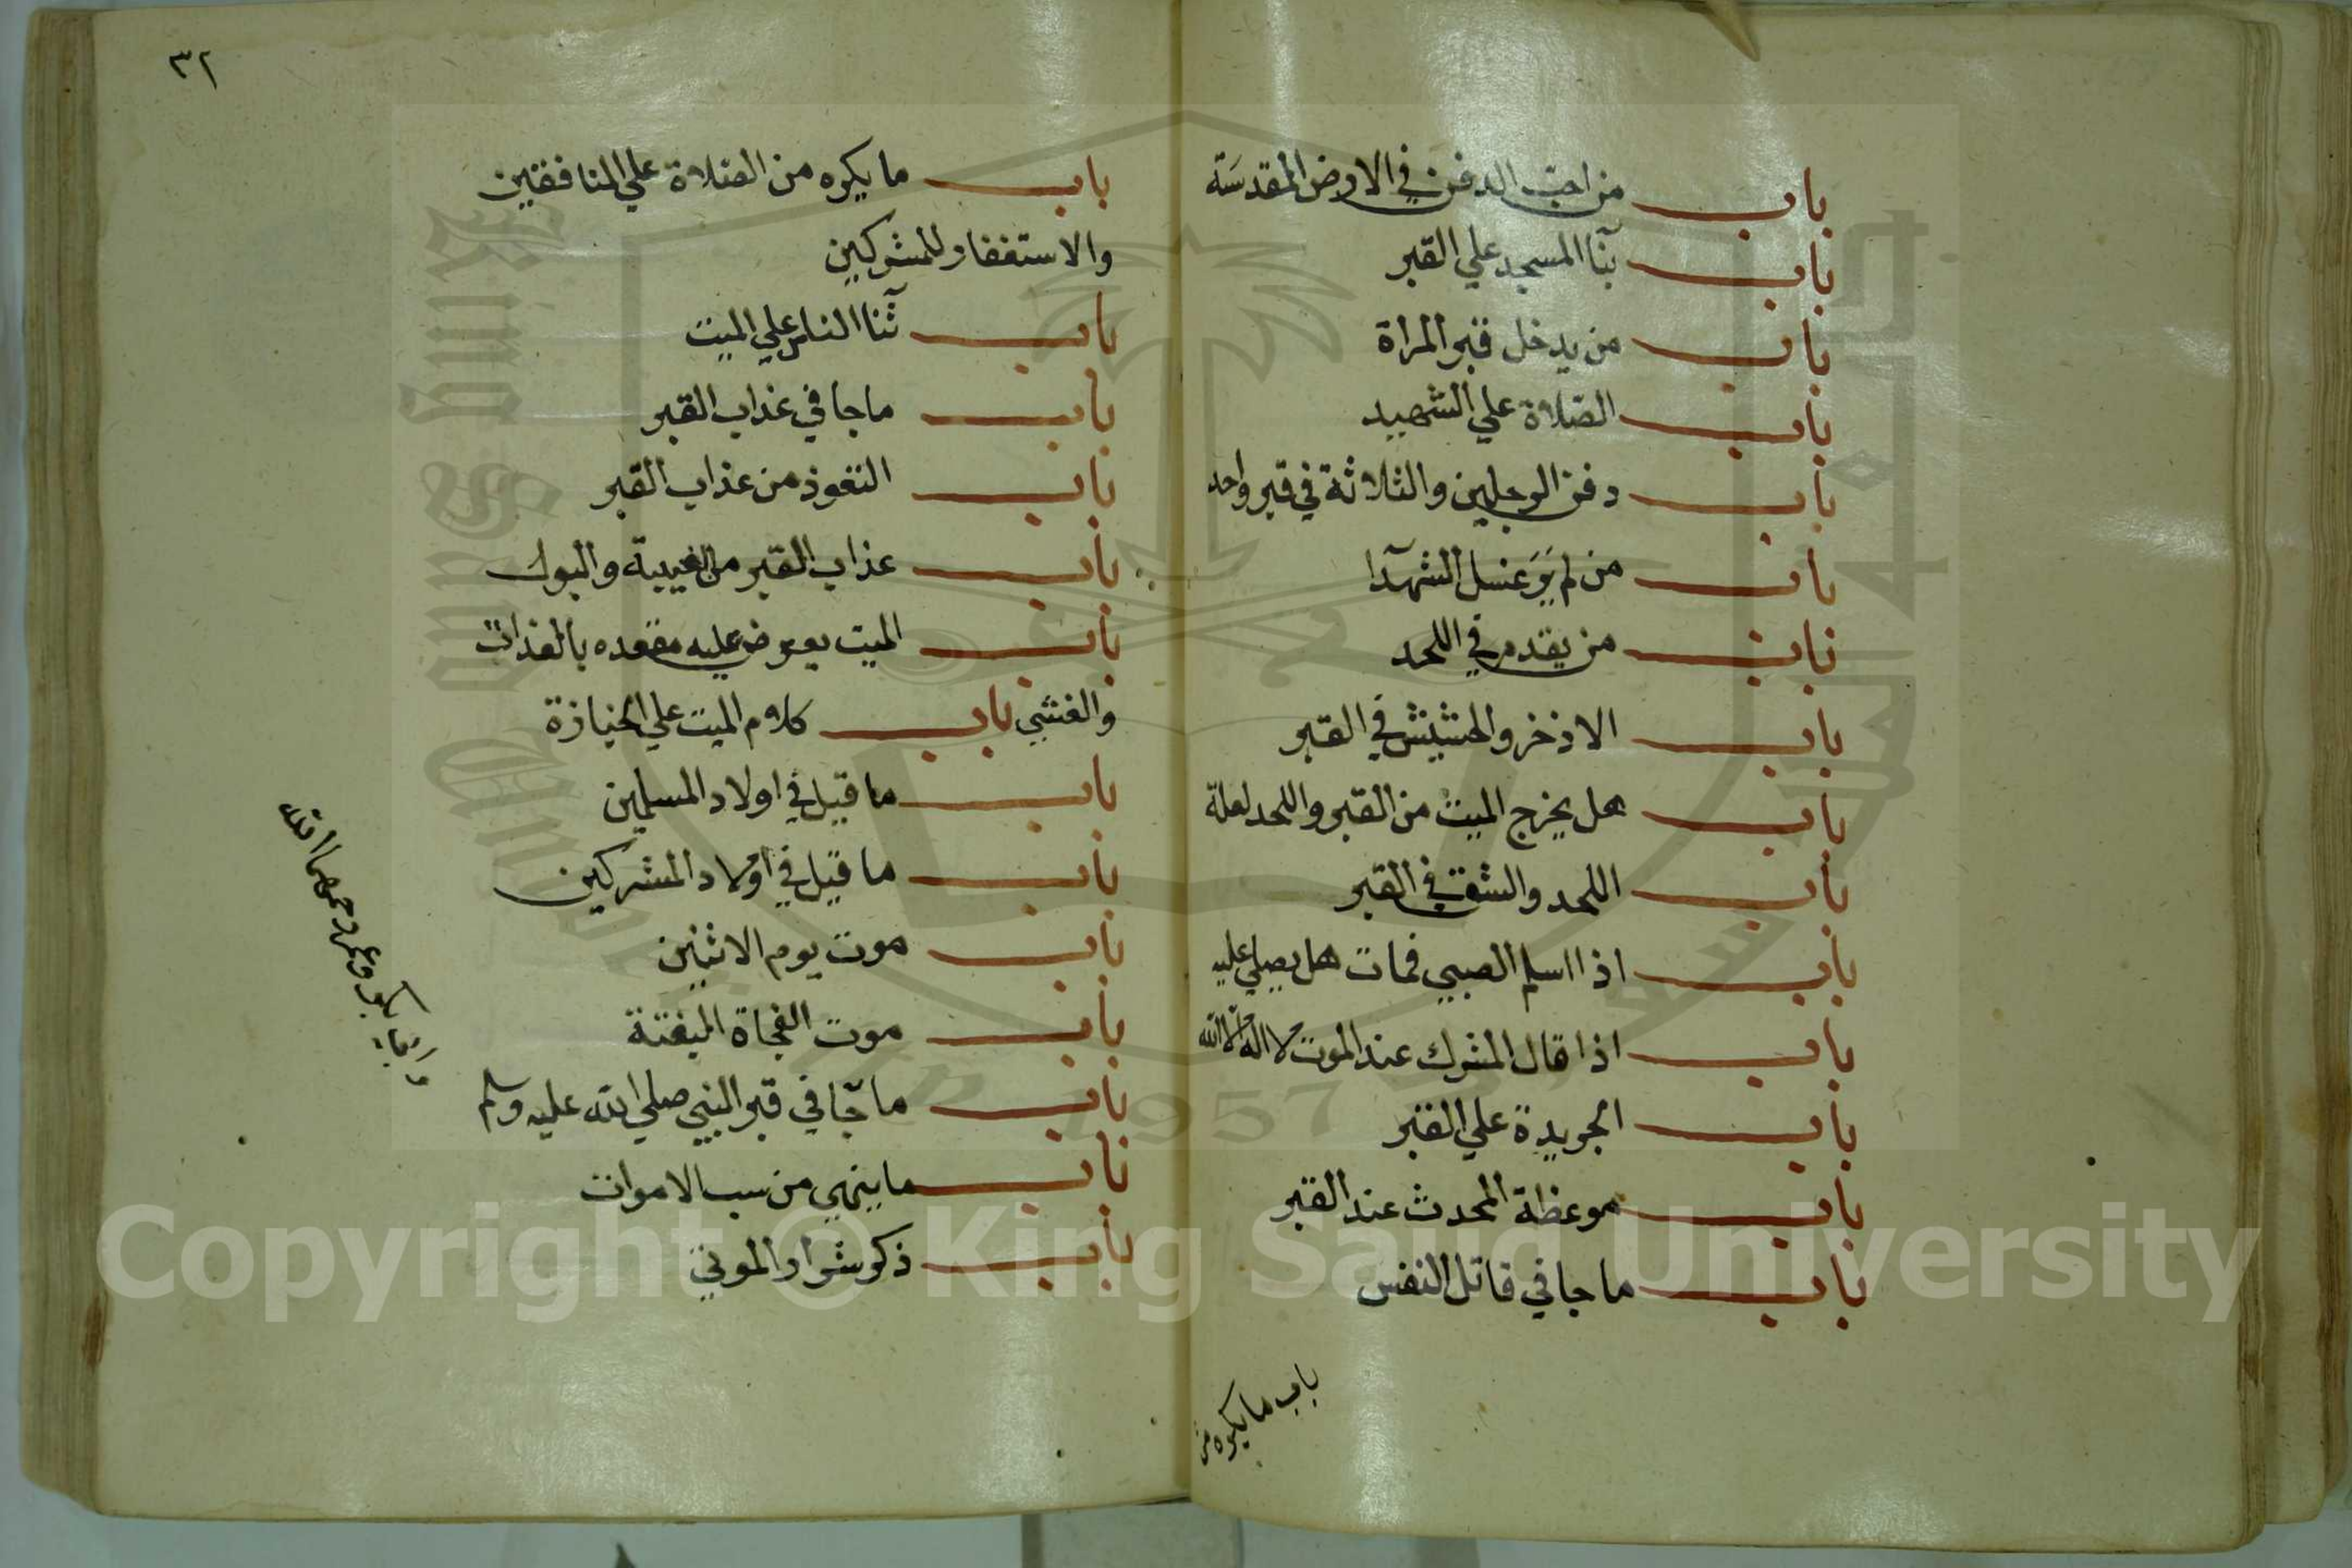 باب من احب الدفن في الارض المقدسة
باب بنآ المسجد علي القبر
باب من يدخل قبر المراة
باب الصلاة علي الشهيد
باب دفن الرجلين والثلاثة في قبر واحد
باب من لم ير غسل الشهدآ
باب من يقدم في اللحد
باب الاذخر والحشيش في القبر
باب هل يخرج الميت من القبر واللحد لعلة
باب اللحد والشق في القبر
باب اذا اسلم الصبي فمات هل يصلي عليه
باب اذا قال المشرك عند الموت لا اله الا الله
باب الجريدة علي القبر
باب موعظة المحدث عند القبر
باب ما جا في قاتل النفس
باب ما يكره من
٣٢
باب ما يكره من الصلاة علي المنافقين
والاستغفار للمشركين
باب ثنآ الناس علي الميت
باب ما جا في عذاب القبر
باب التعوذ من عذاب القبر
باب عذاب القبر من الغيبة والبول
باب الميت يعرض عليه مقعده بالغداة
والعشي باب كلام الميت علي الجنازة
باب ما قيل في اولاد المسلمين
باب ما قيل في اولاد المشركين
باب موت يوم الاثنين
باب موت الفجاة البغتة
باب ما جآ في قبر النبي صلي الله عليه وسلم
باب ما ينهي من سب الاموات
باب ذكر شرار الموتي
بكر وعمر رضي الله
Copyright © King Saud University
1957